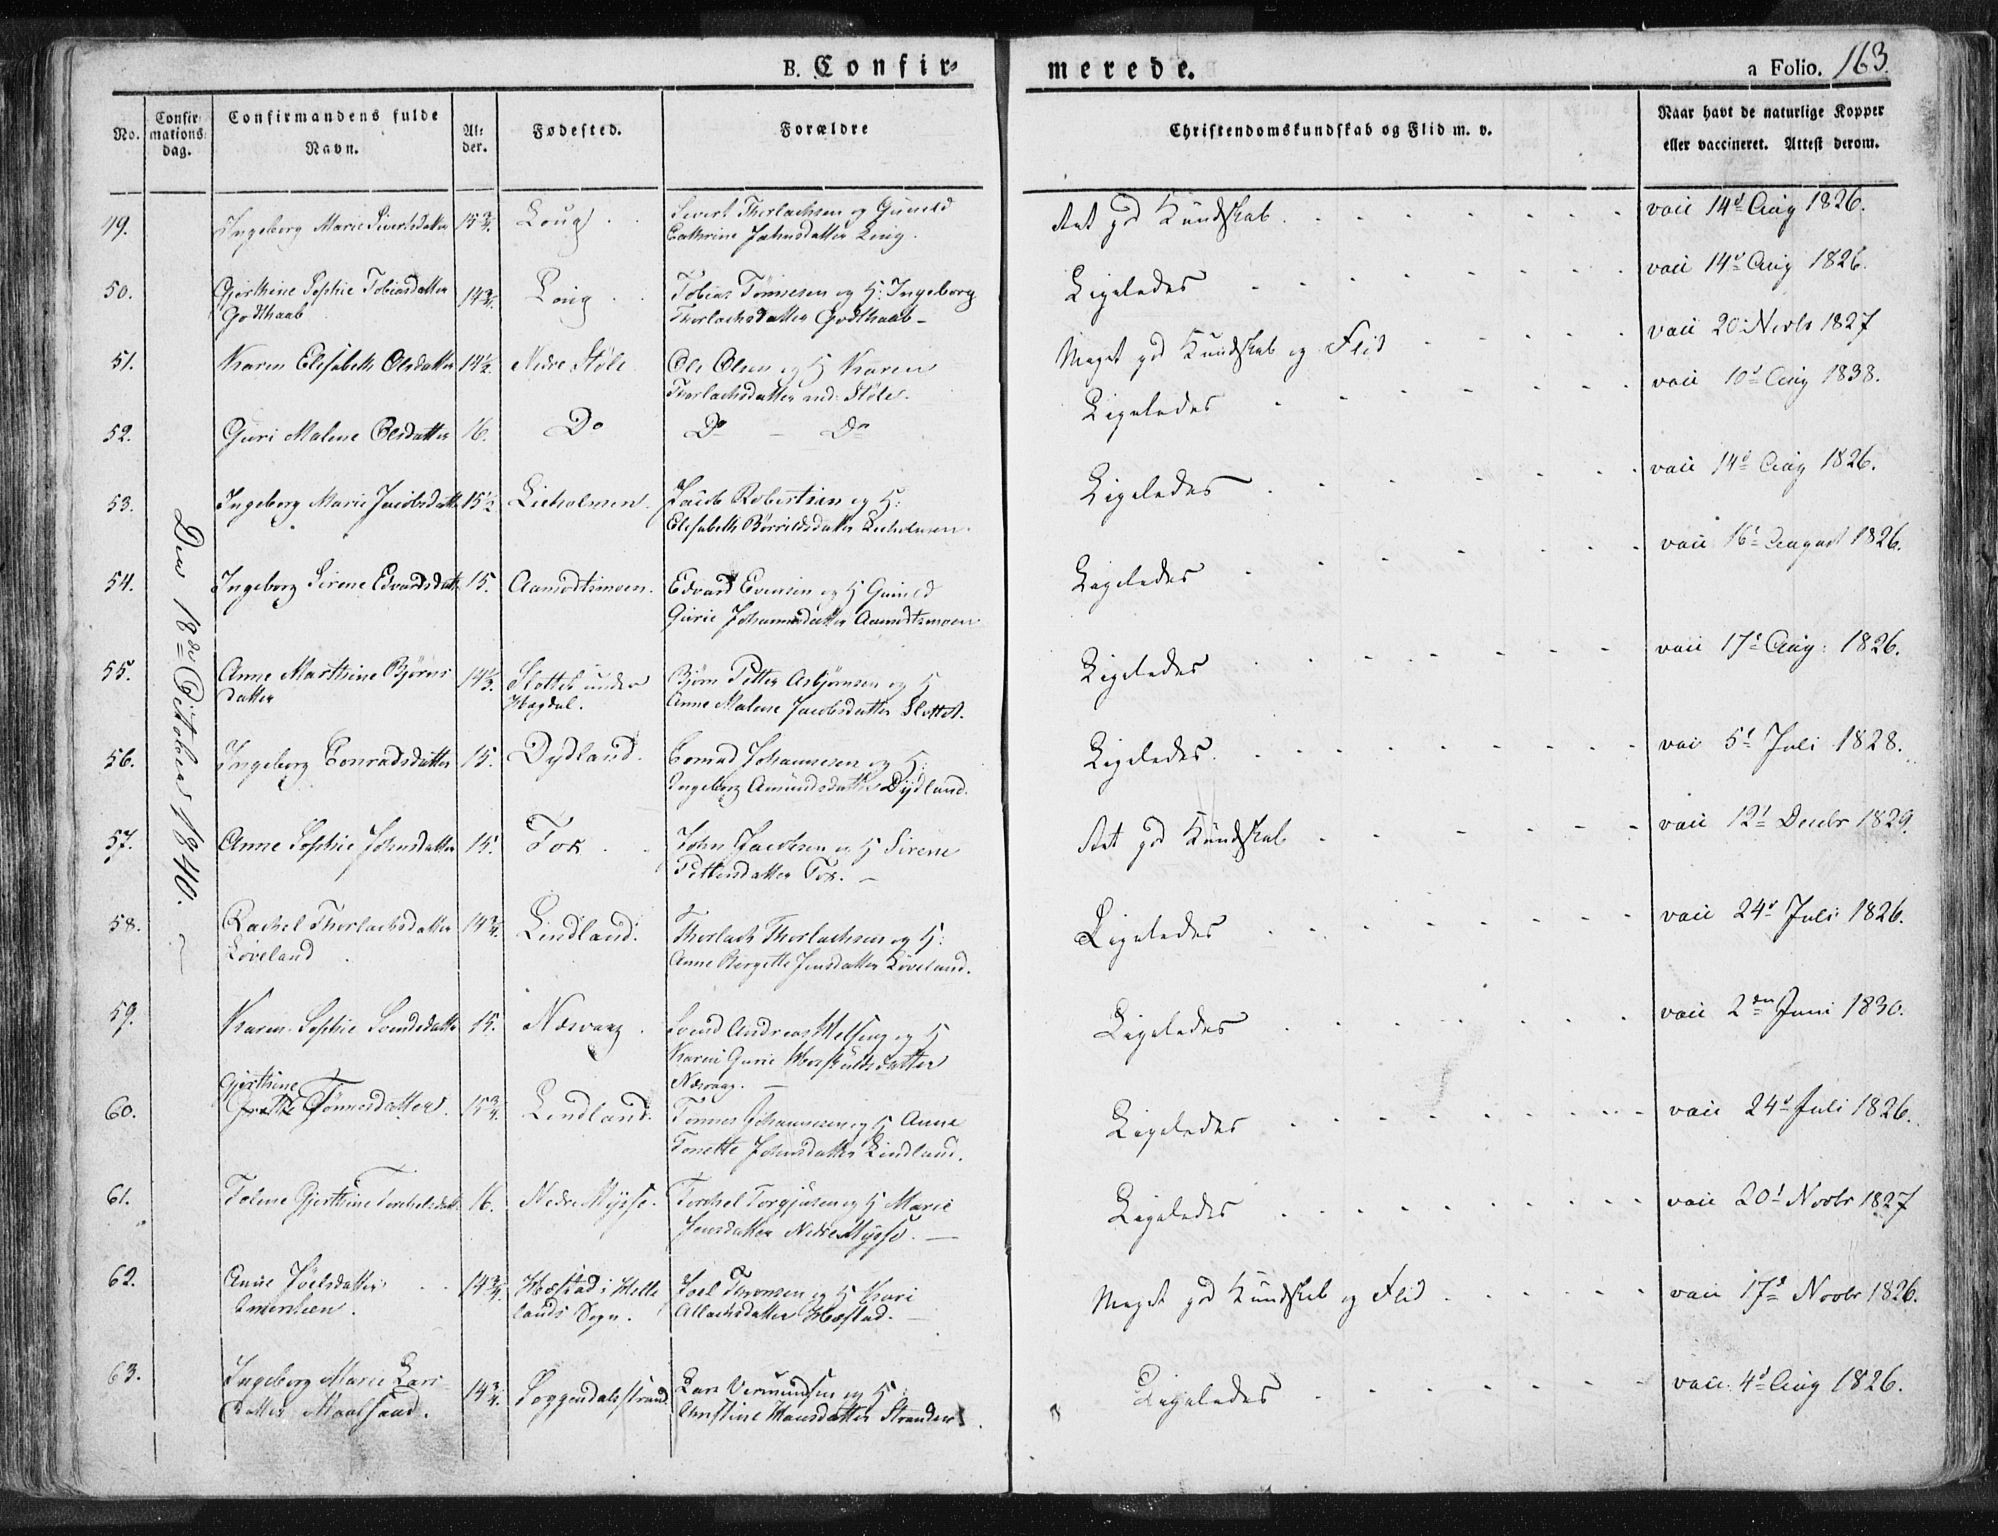 B. Confir=
merede.
a Folio. 163.
No.
Confir=
mations=
dag.
Confirmandens fulde
Navn.
Al=
der.
Fødested.
Forældre
Christendomskundskab og Flid m. v.
Naar havt de naturlige Kopper
eller vaccineret. Attest derom.
Den 18de October 1840.
49. Ingeborg Marie Sivertsdatter 15 3/4.
Sivert Thorlachsen og Gunild
Cathrine Jahnsdatter
god Kundskab vacc 14d Aug 1826.
50. Gjerthine Sophie Tobiasdatter
Godthaab
14 3/4.
Tobias Tønnesen og H: Ingeborg
Thorlachsdatter Godthaab
Ligeledes vacc 14d Aug 1826.
51. Karen Elisabeth Olsdatter 14 1/2. Nedre Støle
Ole Olsen og H Karen
Thorlachsdatter ned: Støle.
Meget god Kundskab og Flid vacc 20 Novbr 1827
52. Guri Malene Olsdatter 16. Do Do – Do
Ligeledes vacc 10d Aug 1838.
53. Ingeborg Marie Jacobsdatt 15 1/2 Leeholmen.
Jacob Robertsen og H:
Elisabeth Børrildsdatter Leeholmen.
Ligeledes vacc 14d Aug 1826.
54. Ingeborg Sirene Edvardsdatt 15. Aamodtsmoen.
Edvard Evensen og H Gunild
Gurie Johannesdatter Aamodtsmoen
Ligeledes vacc 16d August 1826.
55. Anne Marthine Bjørns
datter
14 1/3. Slottet under
Hogdal.
Bjørn Petter Asbjørnsen og H
Anne Malene Jacobsdatter Slottet.
Ligeledes vacc 17d Aug: 1826.
56. Ingeborg Conradsdatter 15. Dydland.
Conrad Johannesen og H:
Ingeborg Amundsdatter Dydland.
Ligeledes. vac 5d Juli 1828.
57. Anne Sophie Johnsdatter 15.
John Jacobsen og H Sirene
Pettersdatter
god Kundskab vacc 12d Decbr 1829.
58. Rachel Thorlachsdatter
Løveland
14 3/4. Lindland.
Thorlach Thorlachsen og H:
Anne Bergette Jensdatter Løveland.
Ligeledes vacc 24d Juli 1826.
59. Karen Sophie 15. Nesvaag.
Svend Andreas og H
Karen Gurie
Nesvaag.
Ligeledes vacc 2den Juni 1830.
60. Gjerthine
Tønnesdatter. 15 3/4. Lindland.
Tønnes Johannesen og H Anne
Tonette Johnsdatter Lindland.
Ligeledes vacc 24d Juli 1826.
61. Tolene Gjerthine Torchelsdatt 16. Nedre Mysse.
Torchel og H Marie
Jensdatter Nedre Mysse.
Ligeledes vacc 20d Novbr 1827
62. Anne Joelsdatter
Emerthen.
14 3/4. Hæstad i Helle
lands Sogn.
Joel Thronsen og H Kari
Hæstad.
Meget god Kundskab og Flid vacc 17d Novbr 1826.
63. Ingeborg Marie Lars
datter
14 3/4. Soggendalsstrand
Lars Vermundsen og H
Christine Hansdatter Stranden.
Ligeledes vacc. 4d Aug 1826.